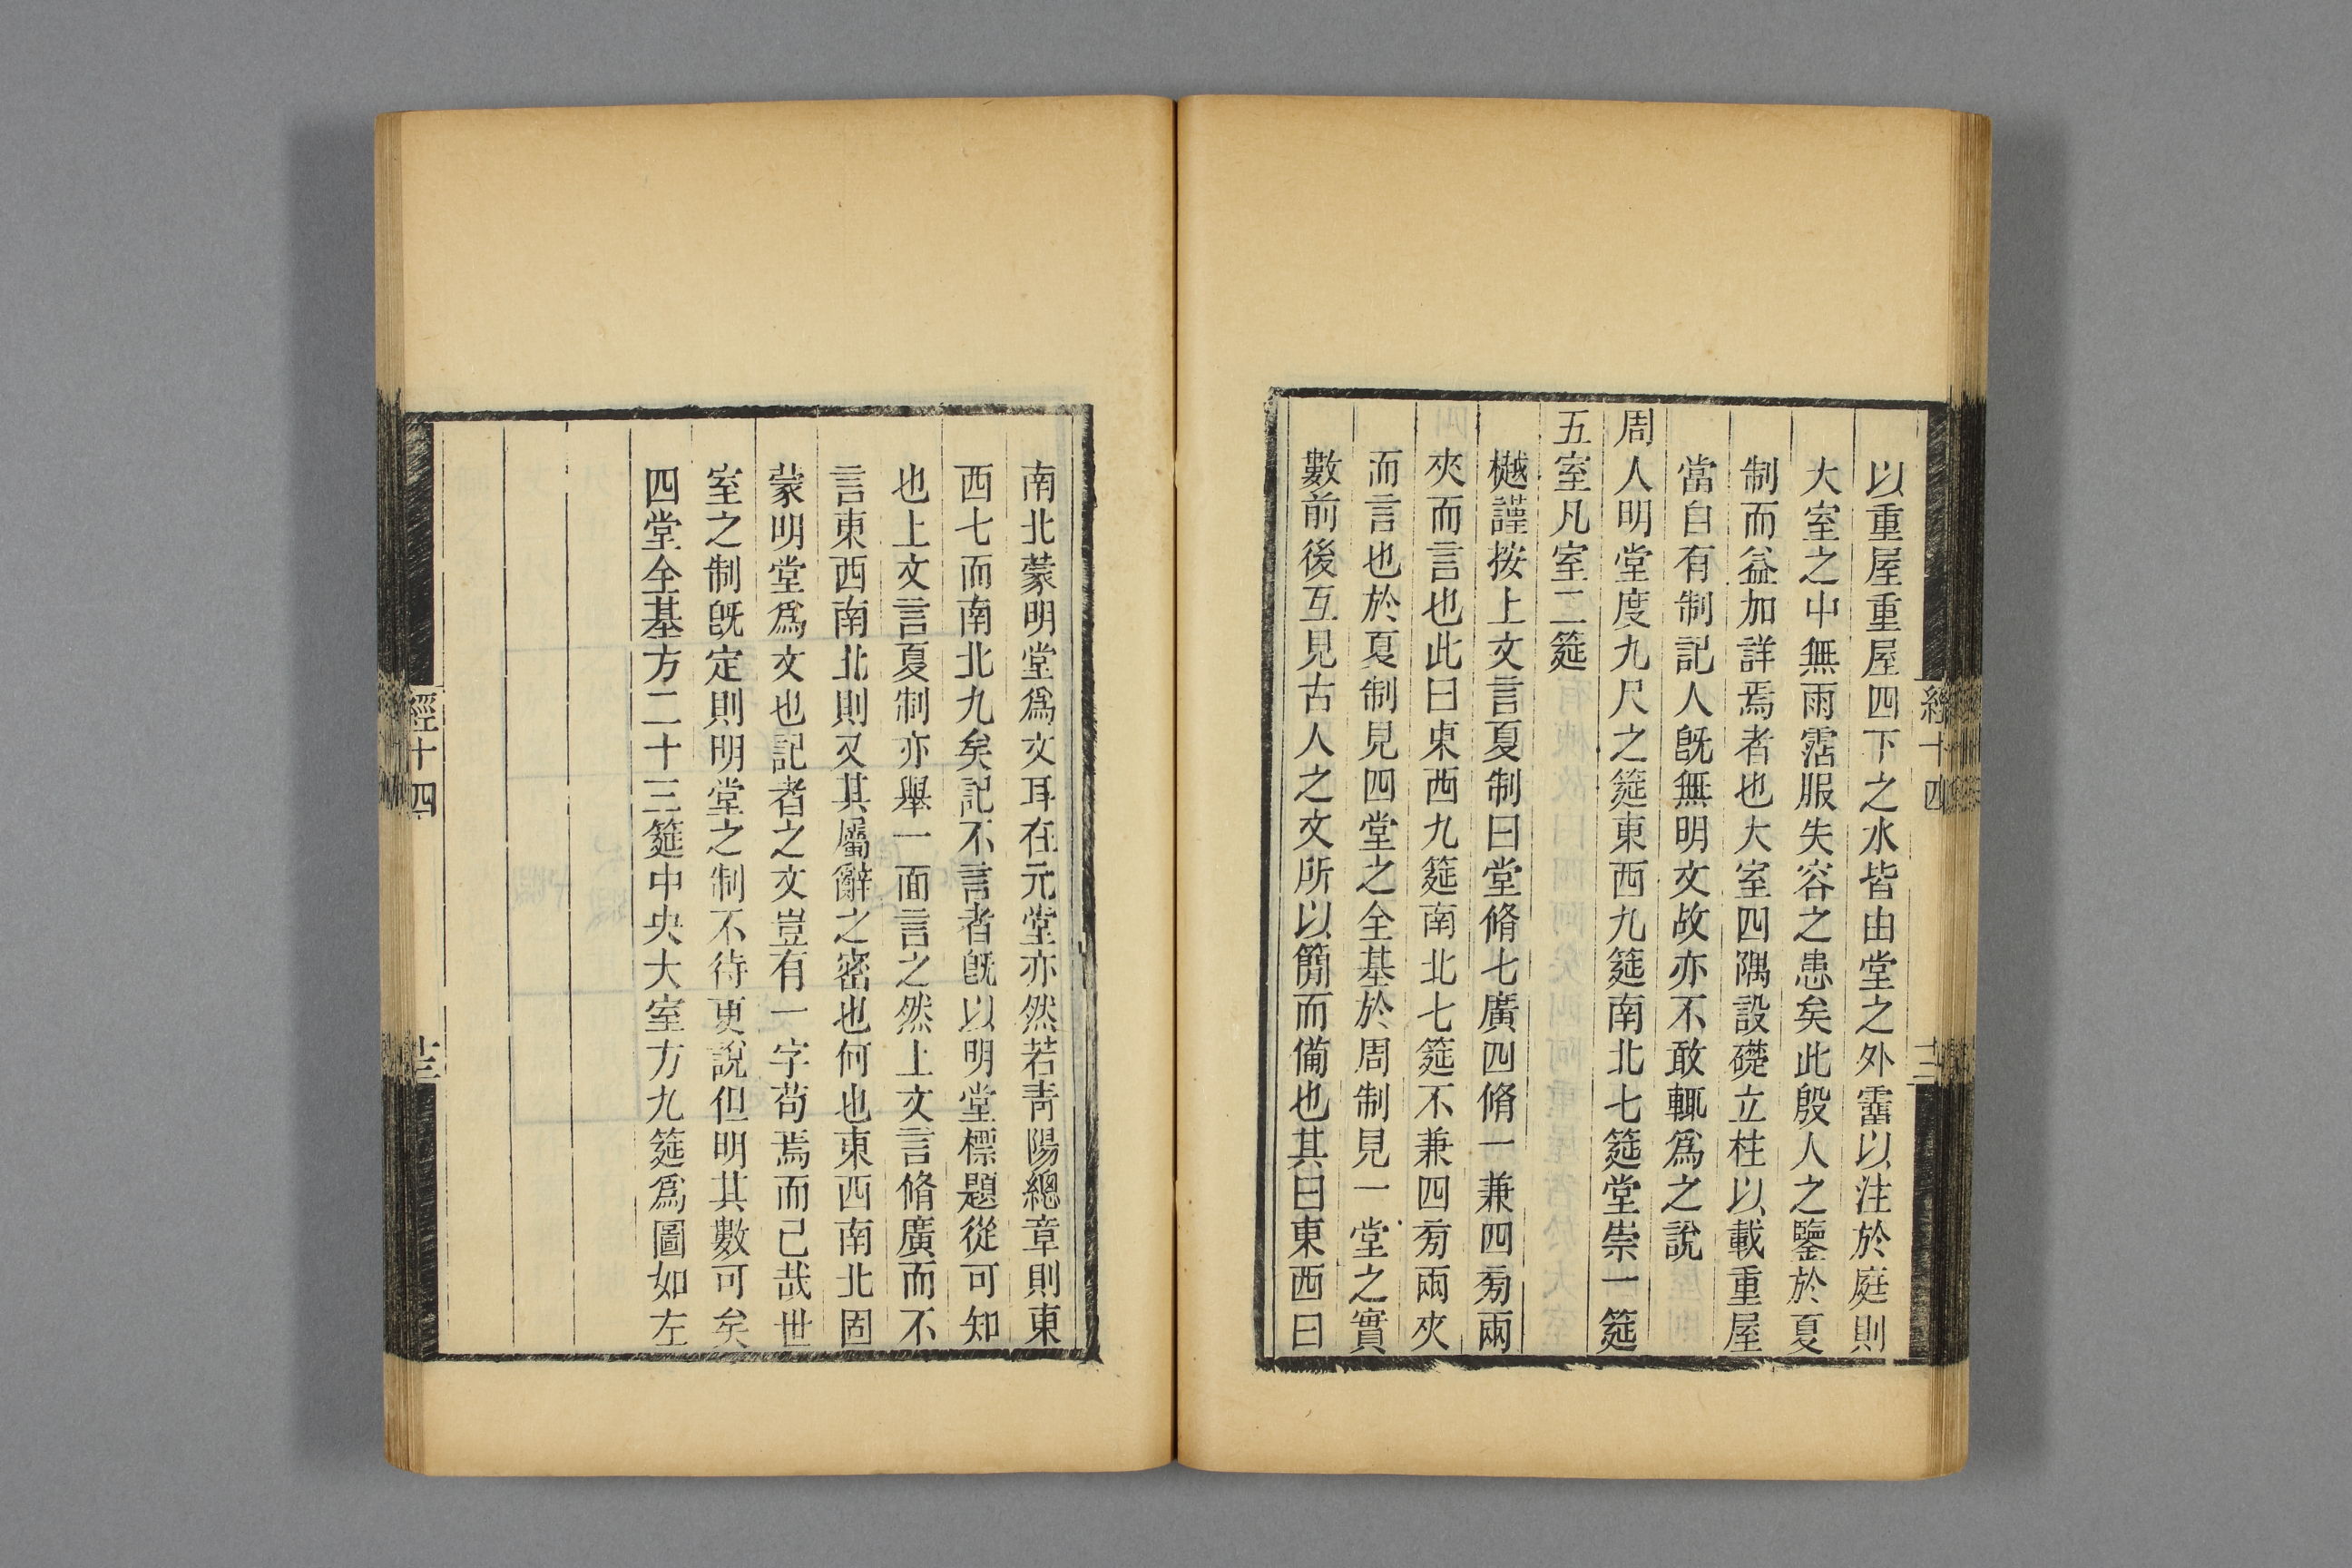 以重屋重屋四下之水皆由堂之外霤以注於庭則
大室之中無雨霑服失容之患矣此殷人之鑒於夏
制而益加詳焉者也大室四隅設礎立柱以載重屋
當自有制記人旣無明文故亦不敢輒爲之說
周人明堂度九尺之筵東西九筵南北七筵堂崇一筵
五室凡室二筵
樾謹按上文言夏制曰堂脩七廣四脩一兼四旁兩
夾而言也此曰東西九筵南北七筵不兼四旁兩夾
而言也於夏制見四堂之全基於周制見一堂之實
數前後互見古人之文所以簡而備也其曰東西曰
經十四
南北蒙明堂爲文耳在元堂亦然若靑陽總章則東
西七而南北九矣記不言者旣以明堂標題從可知
也上文言夏制亦舉一面言之然上文言脩廣而不
言東西南北則又其屬辭之密也何也東西南北固
蒙明堂爲文也記者之文豈有一字苟焉而已哉世
室之制旣定則明堂之制不待更說但明其數可矣
四堂全基方二十三筵中央大室方九筵爲圖如左
經十四